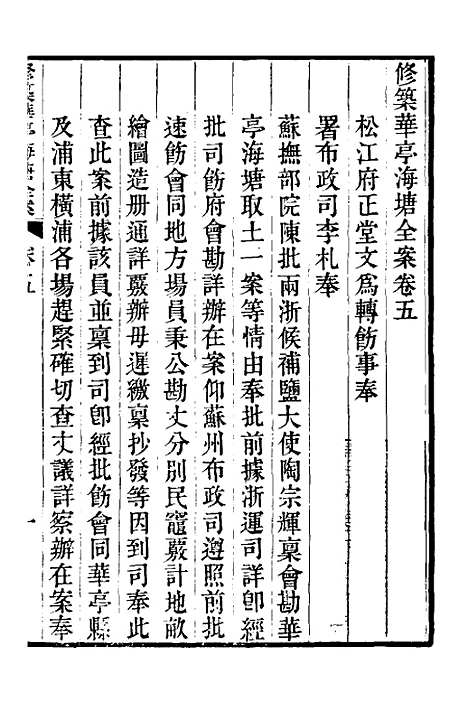 修築華亭海塘全案卷五
松江府正堂文爲轉飭事奉
署布政司李札奉
蘇撫部院陳批兩浙候補鹽大使陶宗輝稟會勘華
亭海塘取土一案等情由奉批前據浙運司詳卽經
批司飭府會勘詳辦在案仰蘇州布政司遵照前批
速飭會同地方塲員秉公勘丈分別民竈覈計地畝
繪圖造册通詳覈辦毋遲繳稟抄發等因到司奉此
查此案前據該員並稟到司卽經批飭會同華亭縣
及浦東橫浦各塲趕緊確切查丈議詳察辦在案奉
修築華亭海塘全案
卷五
一